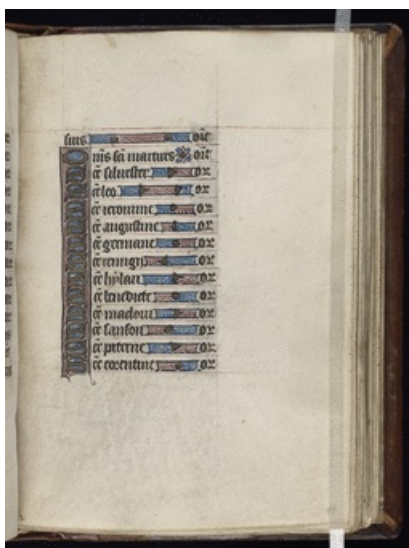 suis
Om̄s sc̄i martires
Sc̄e siluester or
Sc̄e leo or
Sc̄e ieronime or
Sc̄e augustine or
Sc̄e germane or
Sc̄e remigi or
Sc̄e hylari or
Sc̄e benedicte or
Sc̄e macloui or
Sc̄e sanson or
Sc̄e paterne or
Sc̄e corentine or